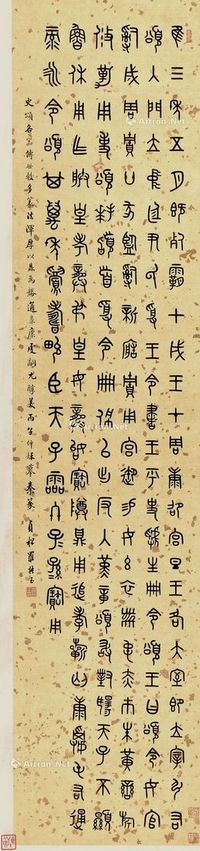 隹三年五月既死霸甲戌王才周康邵宮旦王各大室即立宰弘右
頌入門立中廷尹氏受王令書王乎史虢生冊令頌王曰頌令女官
成周賈廿家監新造賈用宮御易女玄衣黹屯赤巿朱黃旂
攸勒用事頌拜稽首受令冊佩以出反入堇章頌敢對揚天子不顯
魯休用乍朕皇考龏弔皇母龏始寶尊鼎用追孝康屯右通
彔永令頌其萬年眉壽畯臣天子霝冬子孫寶用
史頌各器傳世最多篆法渾厚以 貞松羅振玉